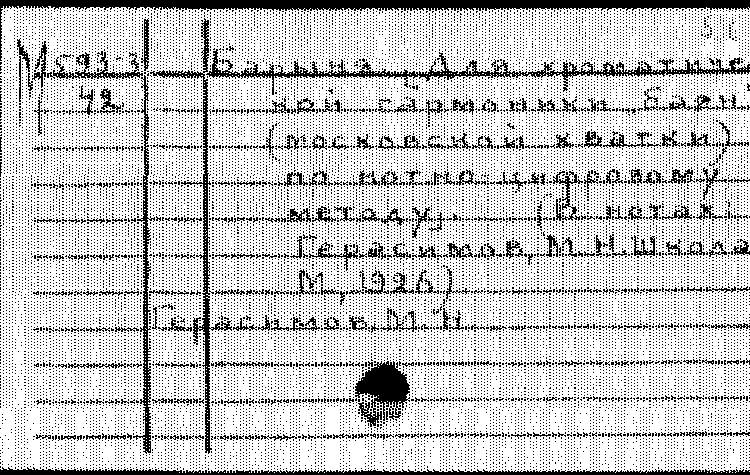 М 593-3 Барыня. Для хроматичес
42 кой гармоники „баян"
(московской хватки)
по нотно-цифровому
методу. (В нотах:
Герасимов, М.Н. Школа
М., 1926)
Герасимов, М.Н.